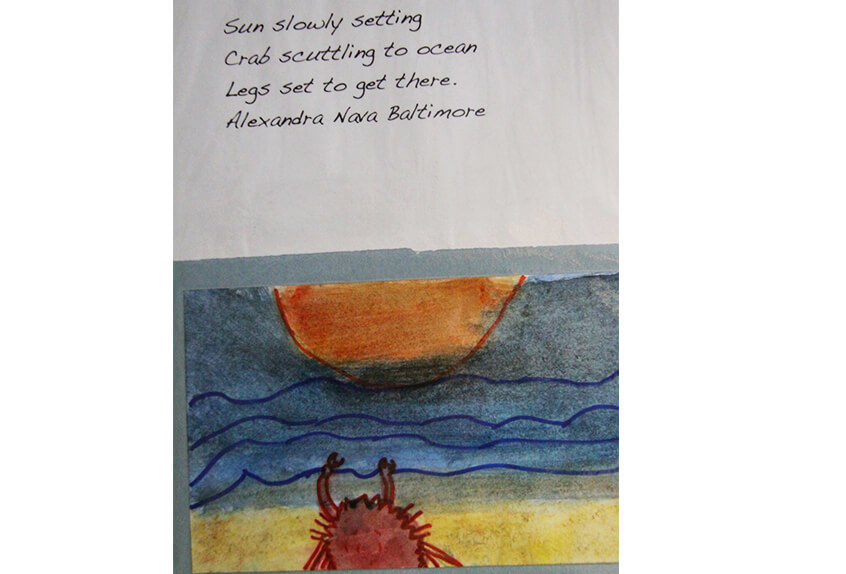 Sun slowly setting
Crab scuttling to ocean
Legs set to get there.
Alexandra Nava Baltimore